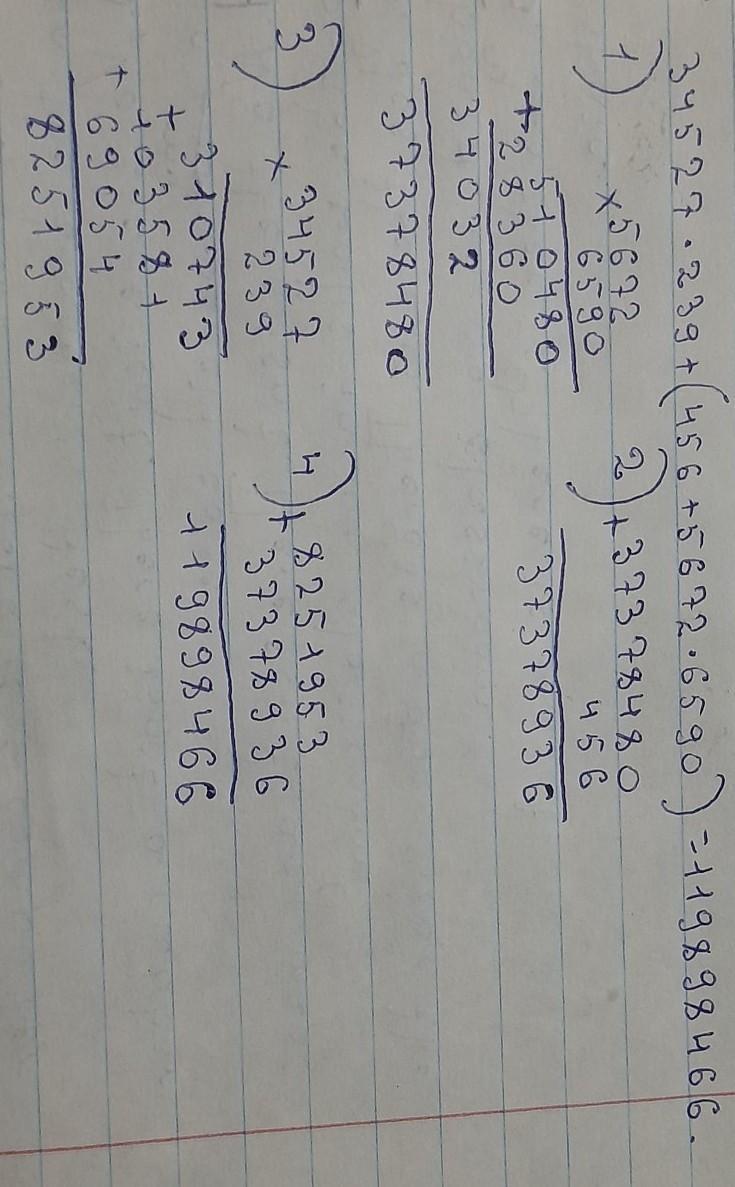 34527·239+(456+5672·6590)=119898466.
1)
×5672
6590
510480
+28360
34032
37378480
2)
+37378480
456
37378936
3)
×34527
239
310743
+103581
+69054
8251953
4)
+8251953
37378936
119898466